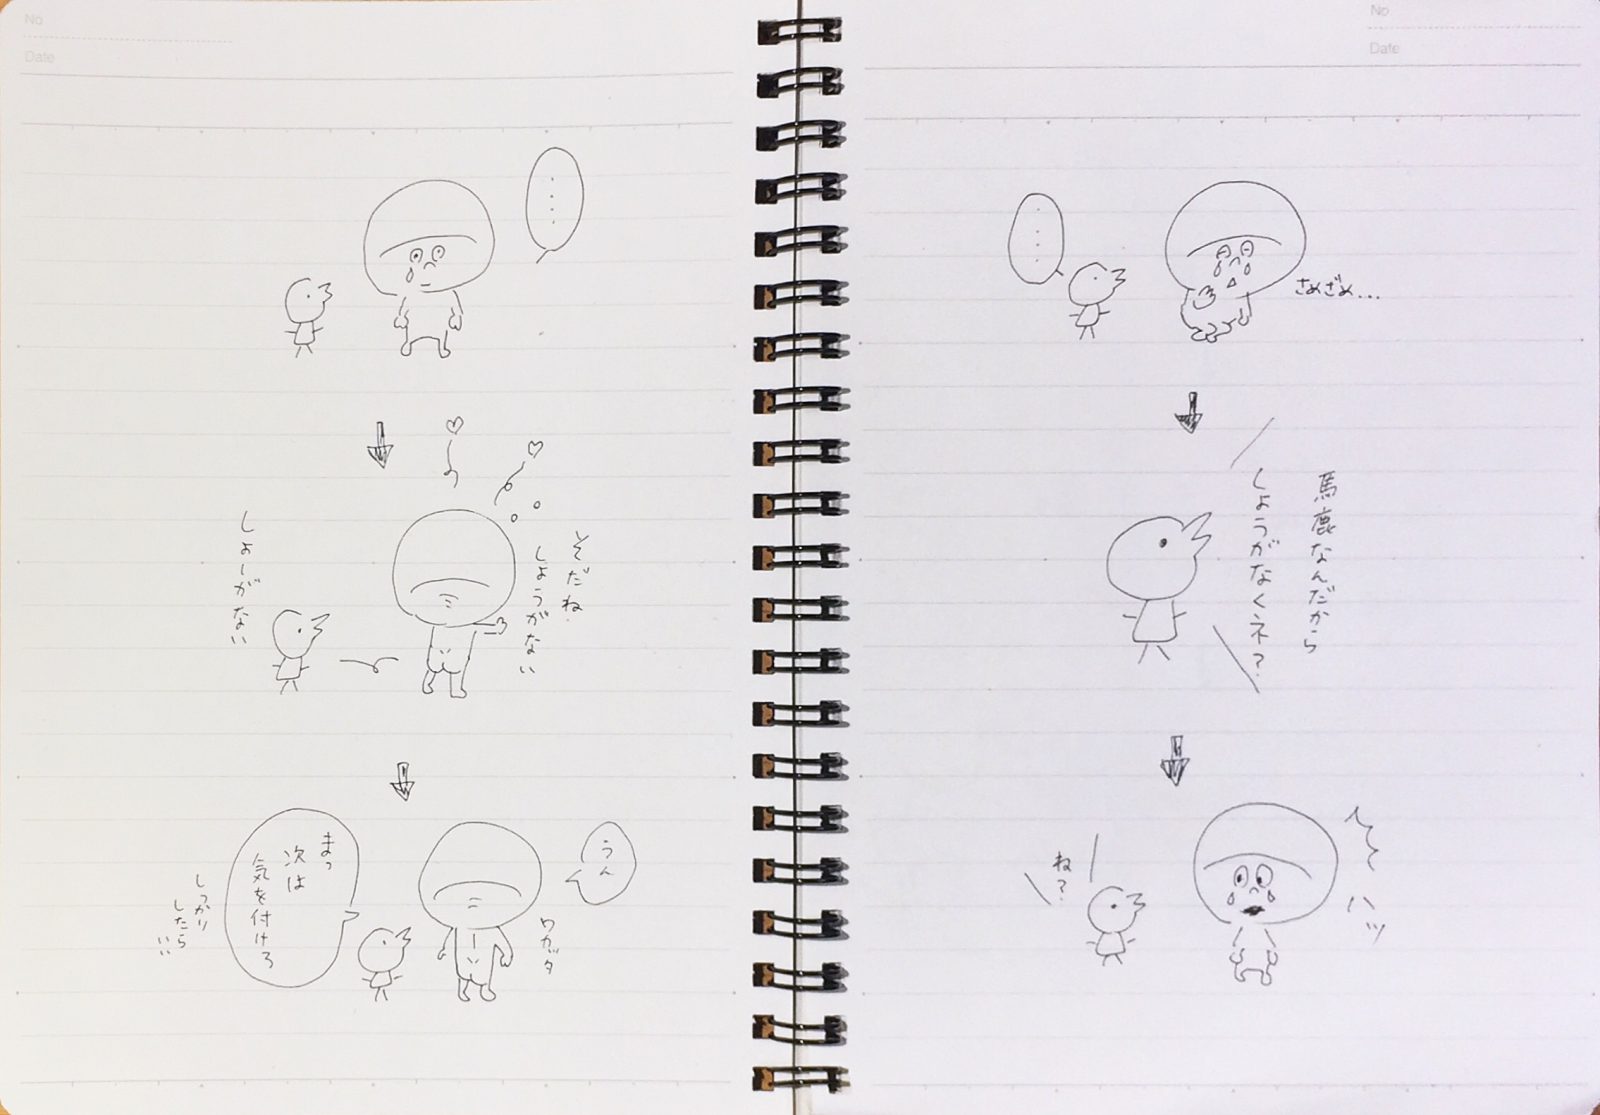 No
Date
No
Date
・・・・
さめざめ...
馬鹿なんだから
しょうがなくネ?
ハッ
ね?
・・・・
そだね
しょうがない
しょーがない
うん
ワカッタ
まっ
次は
気を付けろ
しっかり
したら
いい